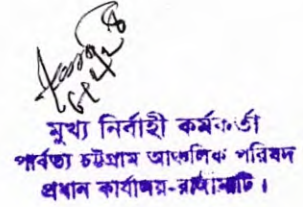 মুখ্য নির্বাহী কর্মকর্তা
পার্বত্য চট্টগ্রাম আঞ্চলিক পরিষদ
প্রধান কার্যালয়-রাঙ্গামাটি।